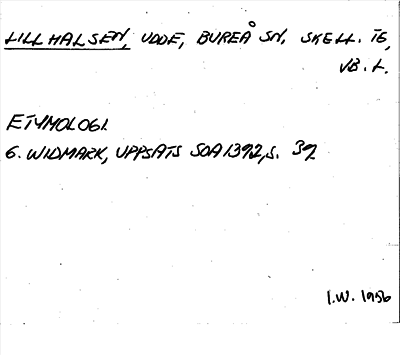 LILLHALSEN, UDDE, BUREÅ SN, SKELL. TG,
VB. L.
ETYMOLOGI.
G. WIDMARK, UPPSATS SOA1392, S. 39
I.W. 1956